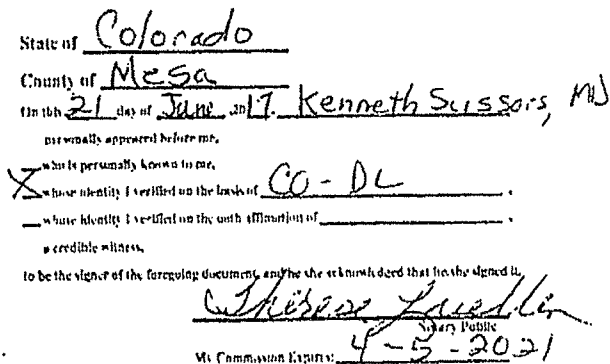 State of Colorado
County of Mesa
On this 21 day of June 2017. Kenneth Scissors, MD
personally appeared before me,
__ who is personally known to me,
X whose identity I verified on the basis of CO - DL .
__ whose identity I verified on the oath affirmation of ____________ .
a credible witness,
to be the signer of the foregoing document, and he she acknowledged that he/she signed it.
Therese
Notary Public
My Commission Expires: 4-5-2021